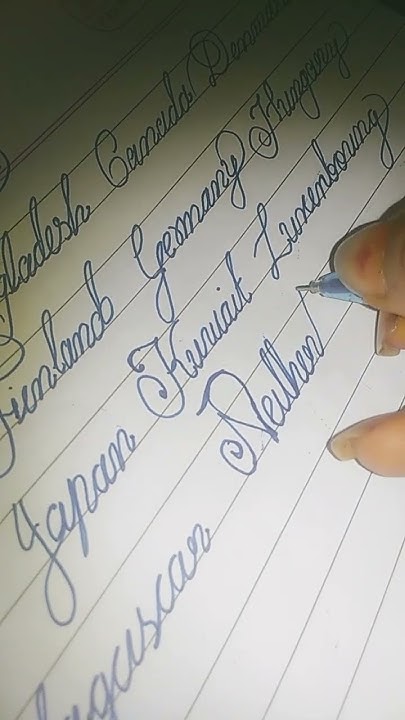 gladesh Canada Denma
Finland Germany Hungary
Japan Kuwait Luxenboung
agascar Nether